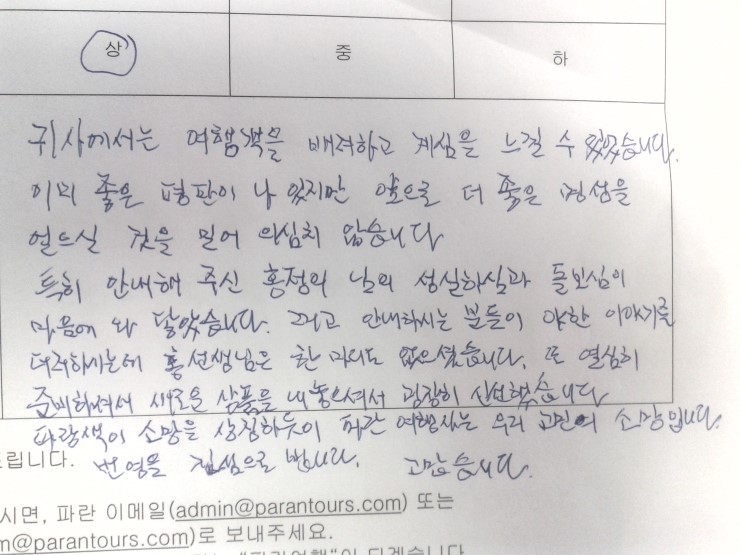 상 중 하
귀사에서는 여행객을 배려하고 계심을 느낄 수 있었습니다.
이미 좋은 평판이 나 있지만 앞으로 더 좋은 명성을
얻으실 것을 믿어 의심치 않습니다
특히 안내해 주신 홍정의 님의 성실하심과 돌보심이
마음에 와 닿았습니다. 그리고 안내하시는 분들이 야한 이야기를
더러하시는데 홍선생님은 한 마디도 없으셨습니다. 또 열심히
준비하셔서 새로운 상품을 내놓으셔서 굉장히 신선했습니다
파랑색이 소망을 상징하듯이 파란 여행사는 우리 교민의 소망입니다.
드립니다. 번영을 진심으로 빕니다. 고맙습니다.
시면, 파란 이메일(admin@parantours.com) 또는
m@parantours.com)로 보내주세요.
"파란여행"이 되겠습니다